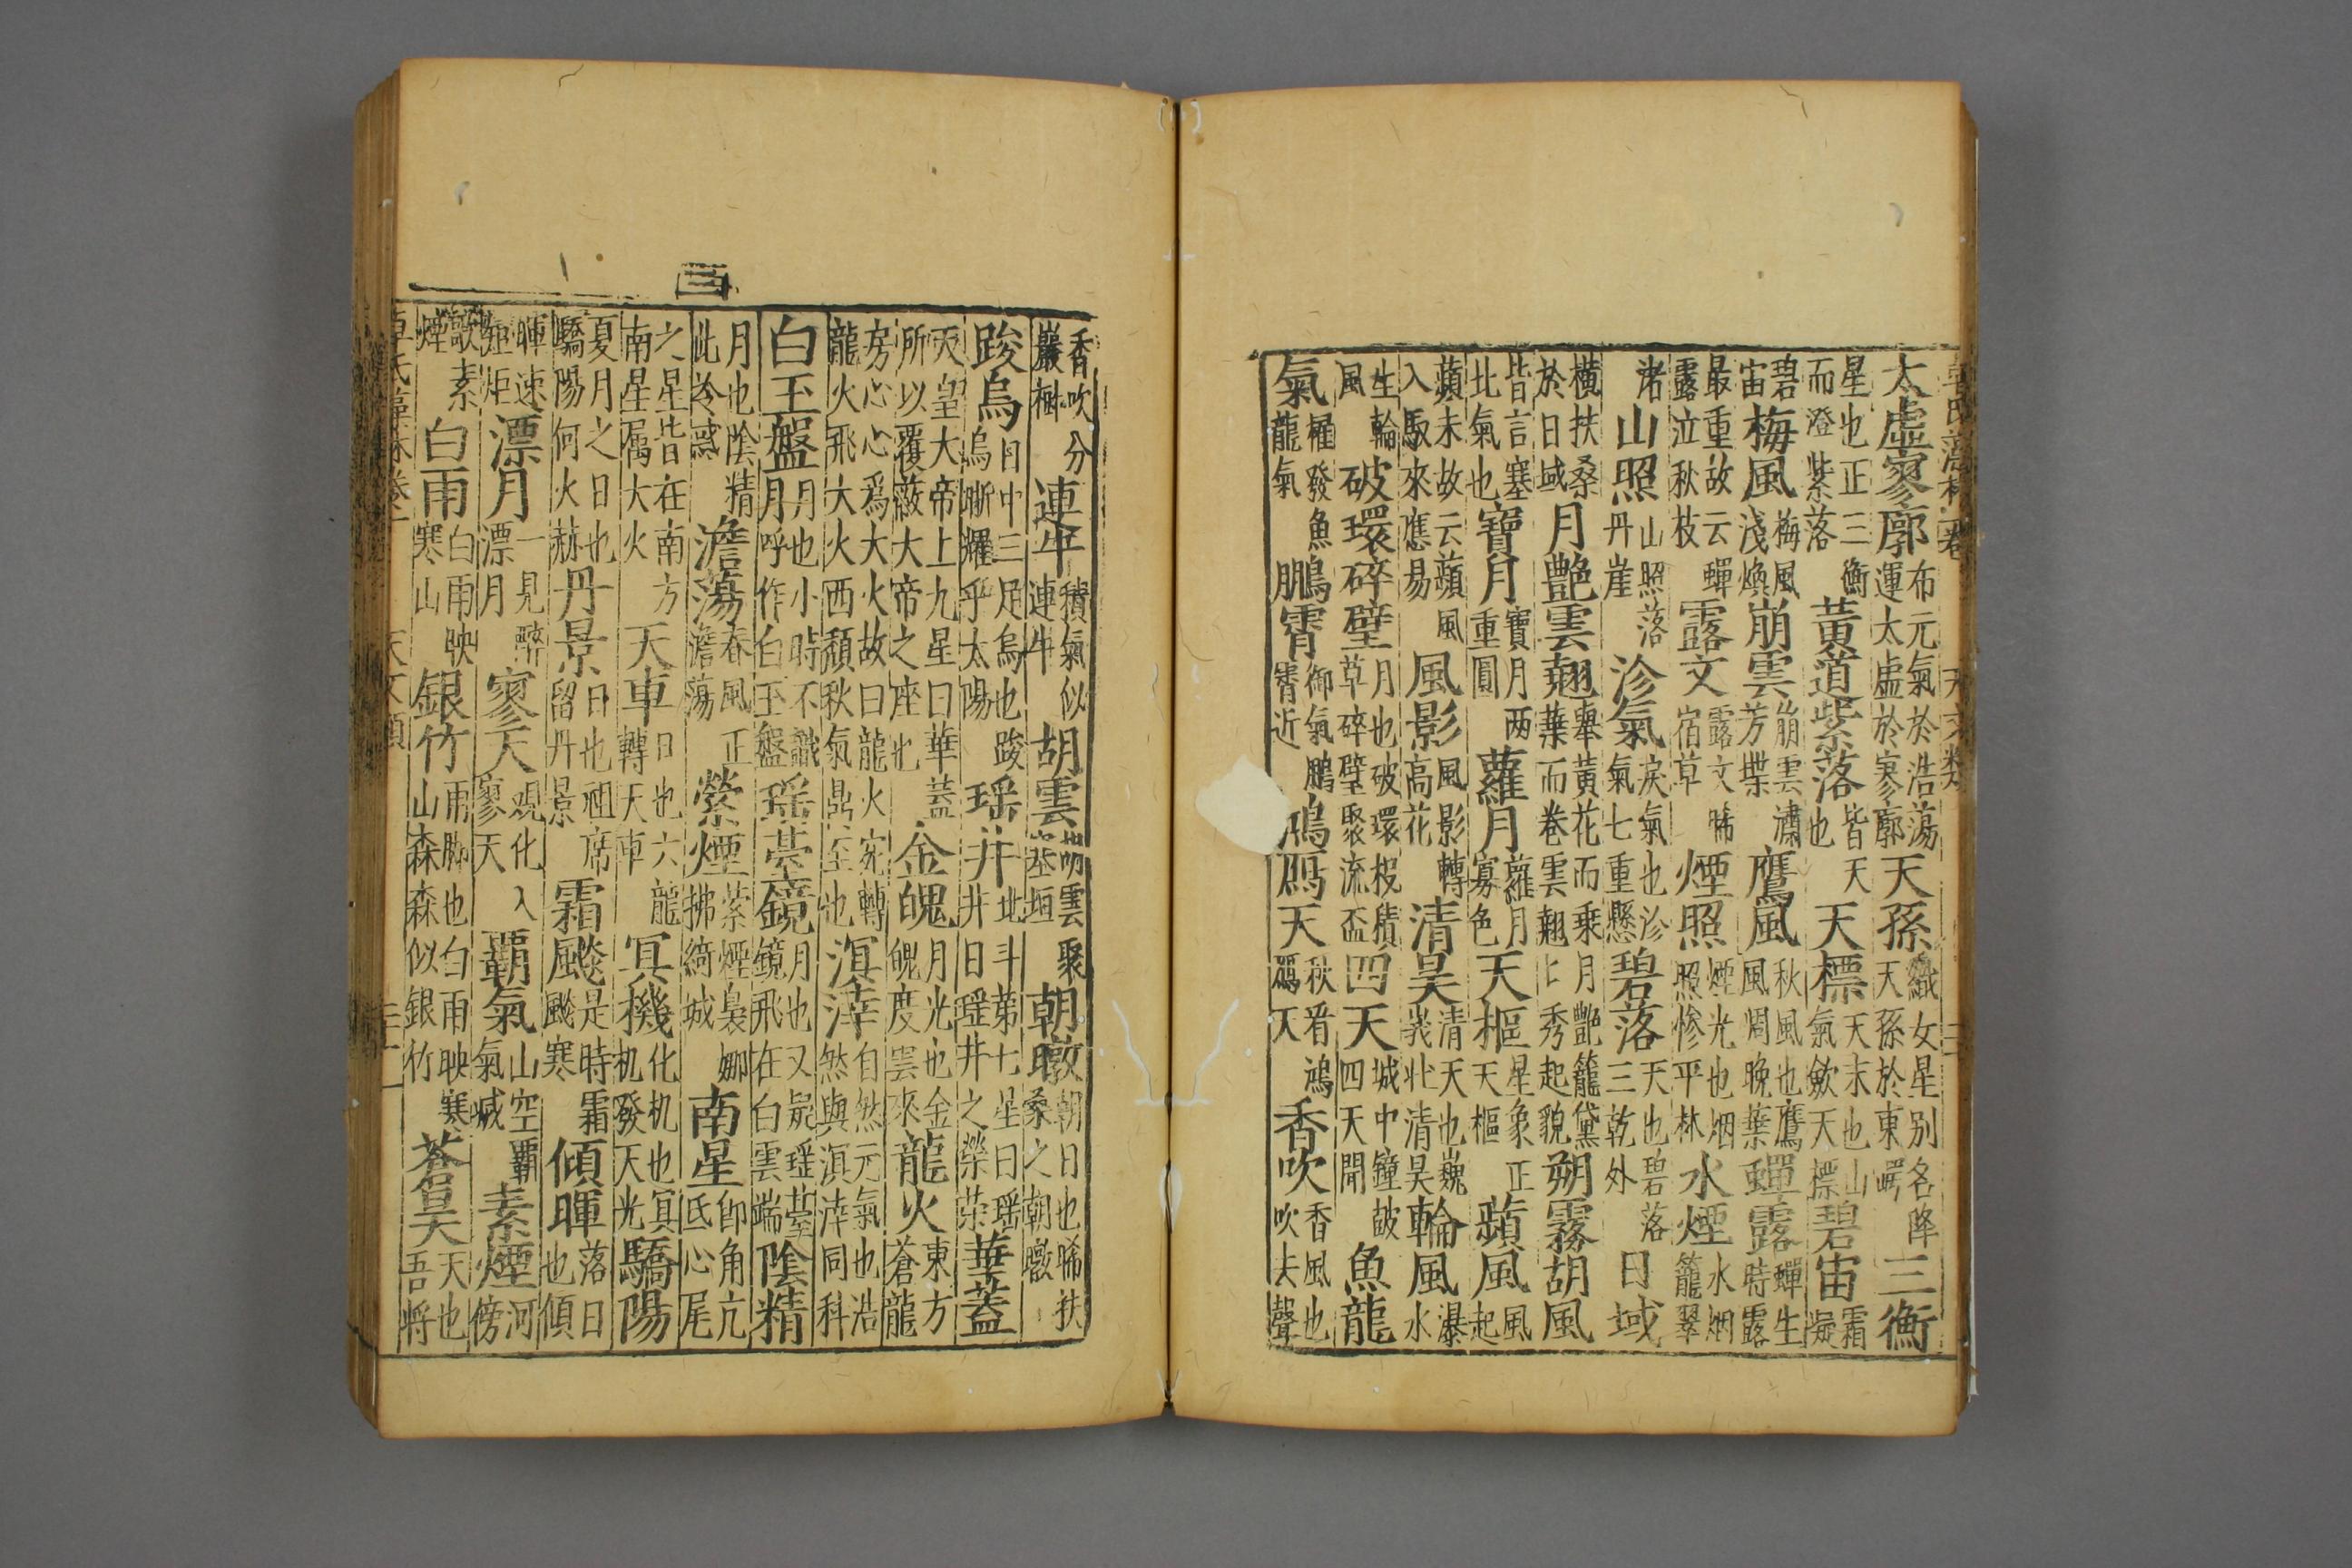 太虛寥廓 布元氣於浩蕩運太虛於寥廓 天孫 織女星別名降天孫於東嵎 三衡
星也正三衡而澄紫落 黃道紫落 皆天也 天標 天末也山氣歛天標 碧宙 霜凝
碧宙 梅風 梅風淺煥 崩雲 崩雲瀟芳 鷹風 秋風也鷹風凋晚葉 蟬露 蟬生時露
最重故云蟬露泣秋枝 露文 露文晞宿草 煙照 煙光也烟照慘平林 水煙 水烟籠翠
渚 山照 山照落丹崖 沴氣 戾氣也沴氣七重懸 碧落 天也碧落三乾外 日域
橫扶桑於日域 月艷雲翹 舉黃花而乘月艷籠黛葉而卷雲翹 七秀起貌 朔霧胡風
皆言塞北氣也 寶月 寶月兩重圓 蘿月 蘿月寡色 天樞 星象正天樞 蘋風 風起
蘋末故云蘋風入馭來應易 風影 風影轉高花 清昊 清天也巍巍壯清昊 輪風 瀑水
生輪風 破環碎璧 月也破環投積草碎璧聚流盃 四天 城中鐘鼓四天聞 魚龍
氣 櫂發魚龍氣 鵬霄 御氣鵬霄近 鴻鴈天 秋看鴻鴈天 香吹 香風也吹去聲
香吹分巖樹 連牛 積氣似連牛 胡雲 胡雲聚塞垣 朝暾 朝日也晞扶桑之朝暾
踆烏 日中三足烏也踆烏晣耀乎太陽 瑶井 北斗第七星曰瑶井日瑶井之榮茶 華蓋
天皇大帝上九星曰華蓋所以覆蔽大帝之座也 金魄 月光也金魄度雲來 龍火 東方蒼龍
房心心爲大火故曰龍火龍火飛大火西頹秋氣 涬溟 自然元氣也浩然與溟涬同科
白玉盤 月也小時不識月呼作白玉盤 瑶臺鏡 月也又疑瑶臺鏡飛在白雲端 陰精
月也陰精此淪惑 澹蕩 春風正澹蕩 縈煙 縈煙裊娜拂綺城 南星 即角亢氐心尾
之星皆在南方南星属大火 天車 日也六龍轉天車 冥機 化机也冥机發天光 驕陽
夏月之日也驕陽何火赫 丹景 日也祖席留丹景 霜飈 是時霜飈寒 傾暉 落日也傾
暉速短炬 漂月 一見醉漂月 寥天 观化入寥天 霸氣 山空霸氣喊 素煙 河傍
歊素煙 白雨 白雨映寒山 銀竹 雨脚也白雨映寒山森森似銀竹 蒼昊 天也吾將